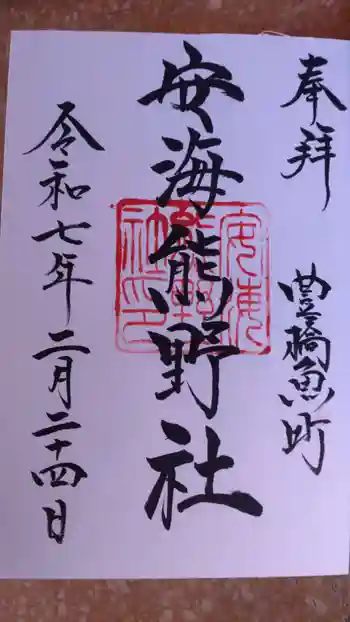 奉拝
豊橋魚町
安海熊野社
安海
熊野
社印
令和七年二月二十四日